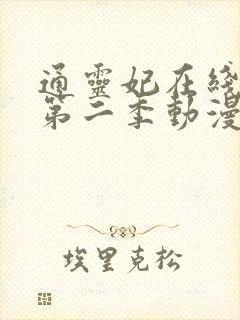 通靈妃在綫
第二季動漫
埃里克松